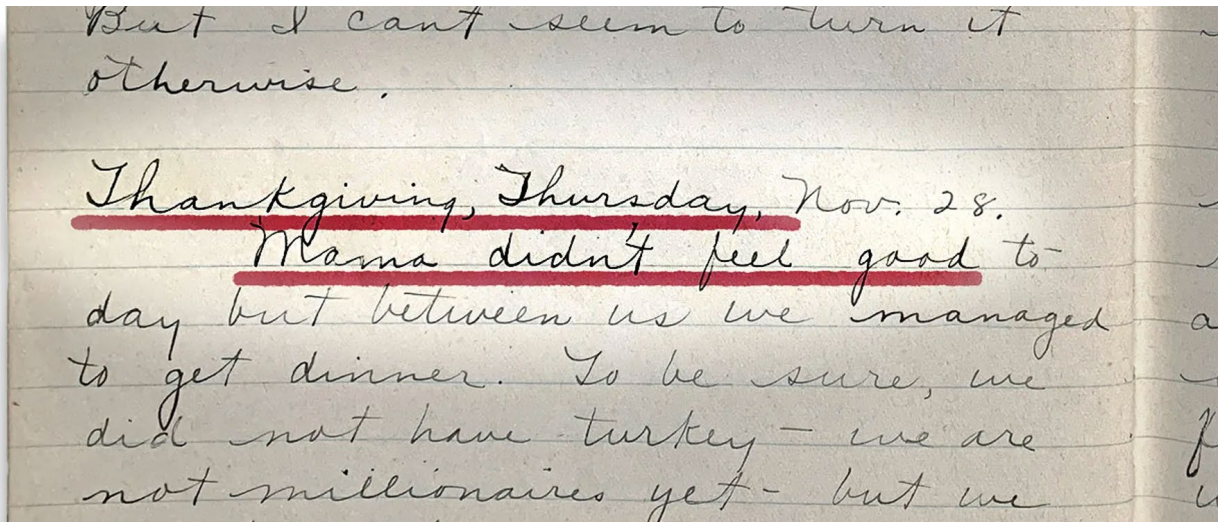 But I can't seem to turn it
otherwise.
Thankgiving, Thursday, Nov. 28.
Mama didn't feel good to-
day but between us we managed
to get dinner. To be sure, we
did not have turkey – we are
not millionaires yet – but we